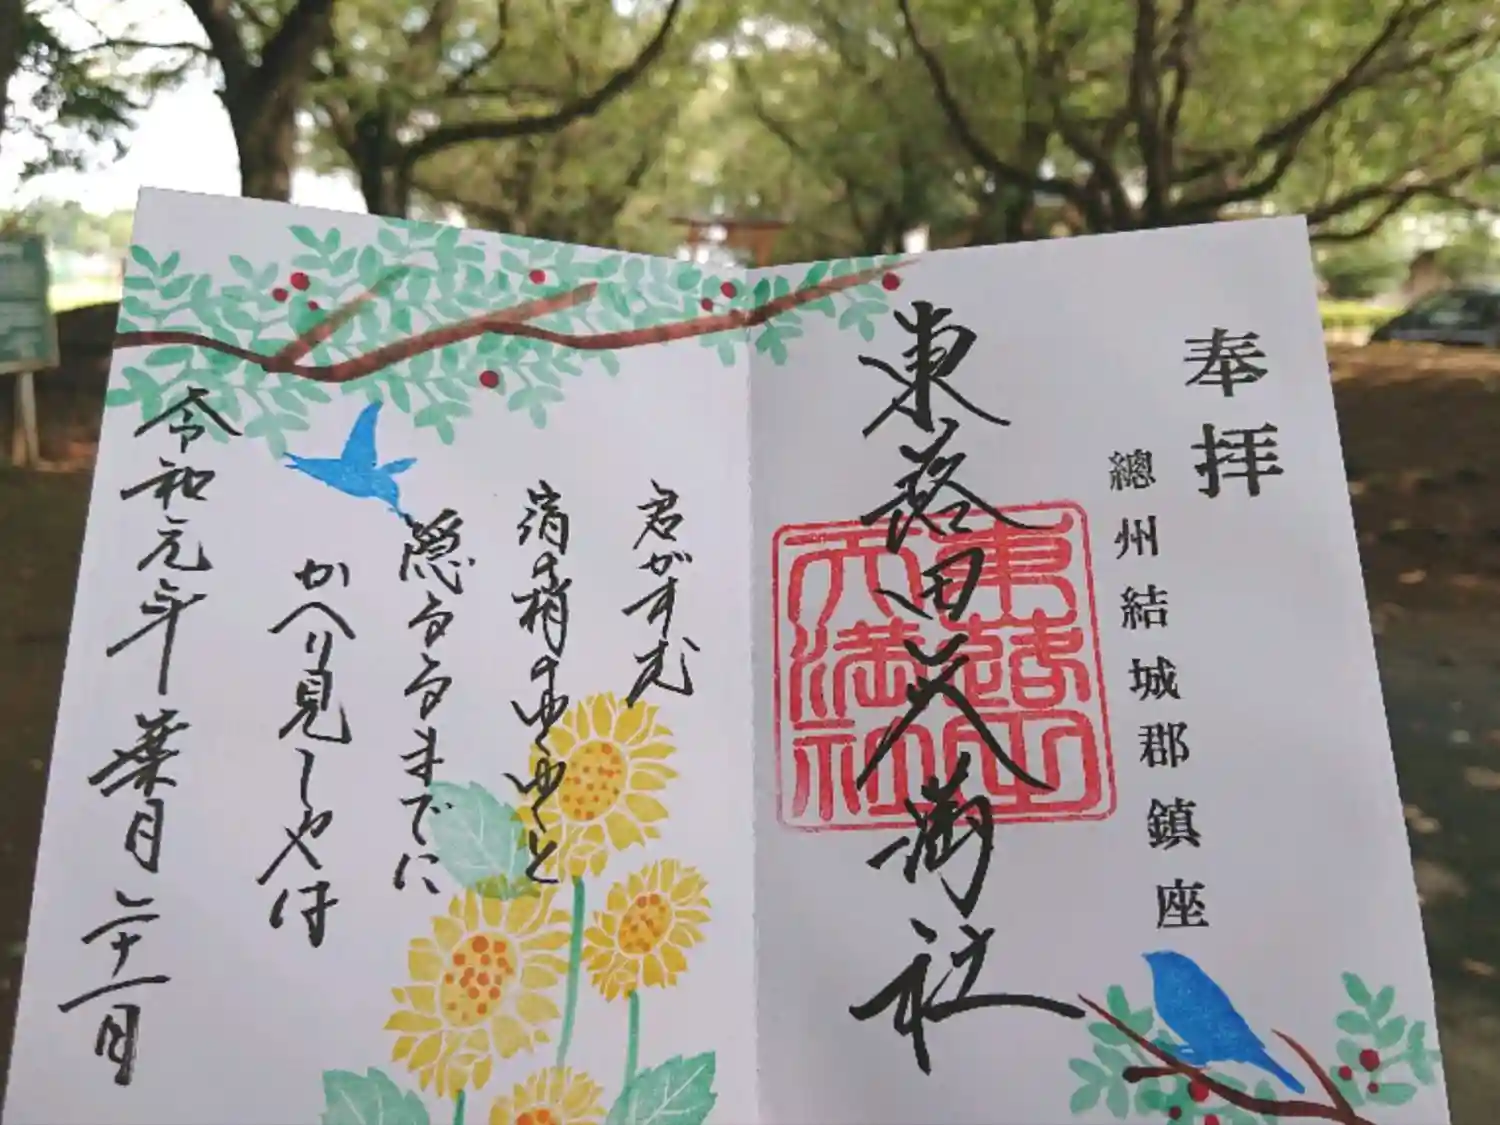 奉拝
總州結城郡鎮座
東蕗田天満社
東蕗田
天満社
君がすむ
宿の梢のゆくゆくと
隠るるまでに
かへり見しやは
令和元年葉月二十一日